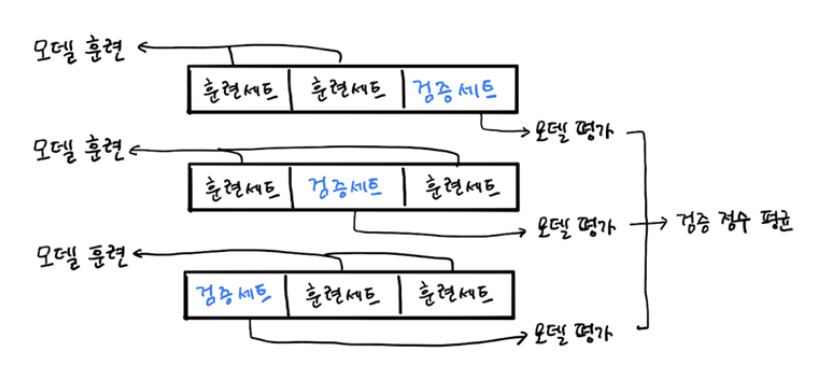 모델 훈련
훈련세트 훈련세트 검증세트
모델 평가
모델 훈련
훈련세트 검증세트 훈련세트
모델 평가
검증 점수 평균
모델 훈련
검증세트 훈련세트 훈련세트
모델 평가